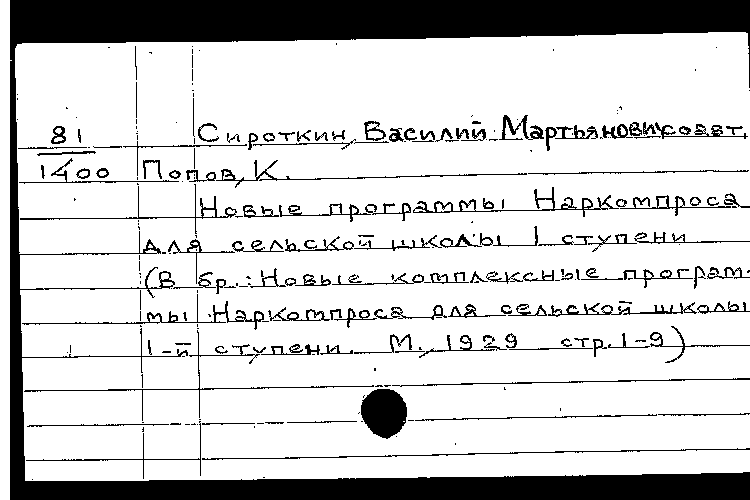 81 Сироткин, Василий Мартьянович, соавт.
1400 Попов, К.
Новые программы Наркомпроса
для сельской школы I ступени
(В бр.: Новые комплексные програм-
мы Наркомпроса для сельской школы
I-й ступени. М., 1929 стр. 1-9)